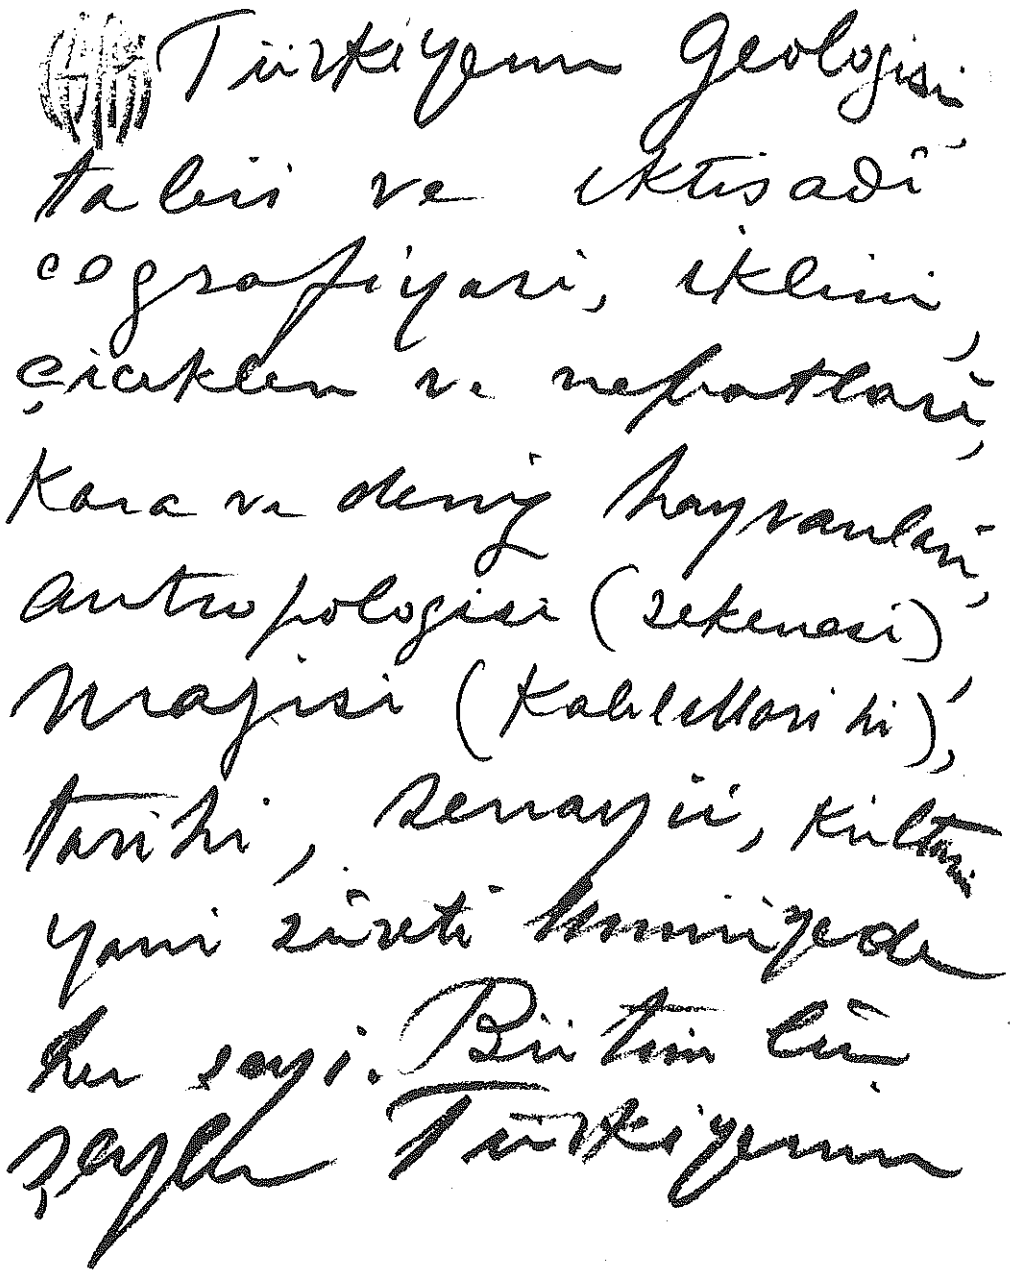 Türkiyenin Geologisi,
tabii ve iktisadî
cografiyasi, iklimi,
çiçekleri ve nebatlari,
Kara ve deniz hayvanlari,
antropologisi (sekenesi)
(Kabilietlarihi),
tarihi, senayii, Kültürü
yani sûreti umumiyede
her seyi. Bütün bu
şeyler Türkiyenin